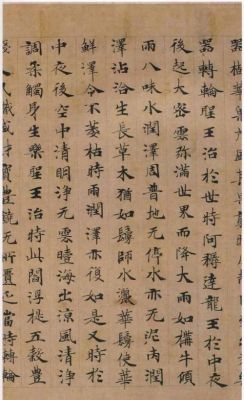 器轉輪聖王治於世時阿耨達龍王於中夜
後起大密雲弥滿世界而降大雨如搆牛頃
雨八味水潤澤周普地无停水亦无泥洿潤
澤沾洽生長草木猶如鬘師水灑華鬘使華
鮮澤令不萎枯時雨潤澤亦復如是又時於
中夜後空中清明淨无雲曀海出涼風清淨
調柔觸身生樂聖王治時此閻浮提五穀豐
人民熾盛財寶豐饒无所匱乏當時轉輪